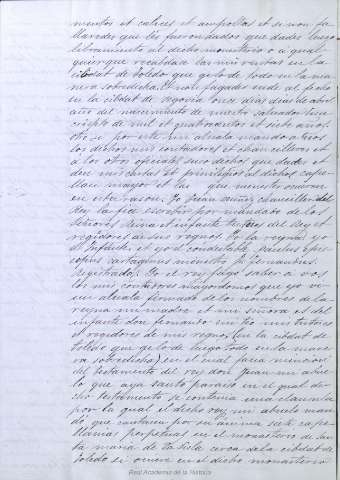 mentos et calices et ampollas et si non fa
llaredes que les fueron dados que dades luego
libramiento al dicho monesterio o a qual
quier que recabdare las mis rentas en la
cibdat de Toledo que gelo de todo en la ma
nera sobredicha. Et non fagades ende al fecho
en la cibdat de Segovia onse dias de abril
año del nacimiento de nuestro salvador Jesu
cristo de mil et quatrocientos et siete años.
et por este mi alvala mando a vos
los dichos mis contadores et chancilleres et
a los otros oficiales suso dichos que dades et
den mis cartas et privilegios al dicho cape
llan mayor et las que menester ovieren
en esta rason. Yo Juan nuñez chanciller del
Rey la fice escrebir por mandado de los
señores Reina et infante tutores del Rey et
regidores de sus regnos Yo la reyna. yo
el Infante. et yo el condestable. Paulus Epis
copus cartaginus
registrada. Yo el rey fago saber a vos
los mis contadores mayordomos que yo vi
un alvala firmado de los nombres de la
reyna mi madre et mi señora et del
infante don fernando mi tio mis tutores
et regidores de mis regnos (en la cibdat de
Toledo que gelo de luego todo en la mane
ra sobredicha), en el cual facia mencion
del testamento del rey don Juan mi abue
lo que aya santo paraiso en el qual di
cho testamento se contenia una clausula
por la qual el dicho rey mi abuelo man
do que cantasen por su anima siete cape
llanias perpetuas en el monesterio de San
ta maria de la Sisla cerca de la cibdat de
Toledo si oviere en el dicho monesterio
Real Academia de la Historia